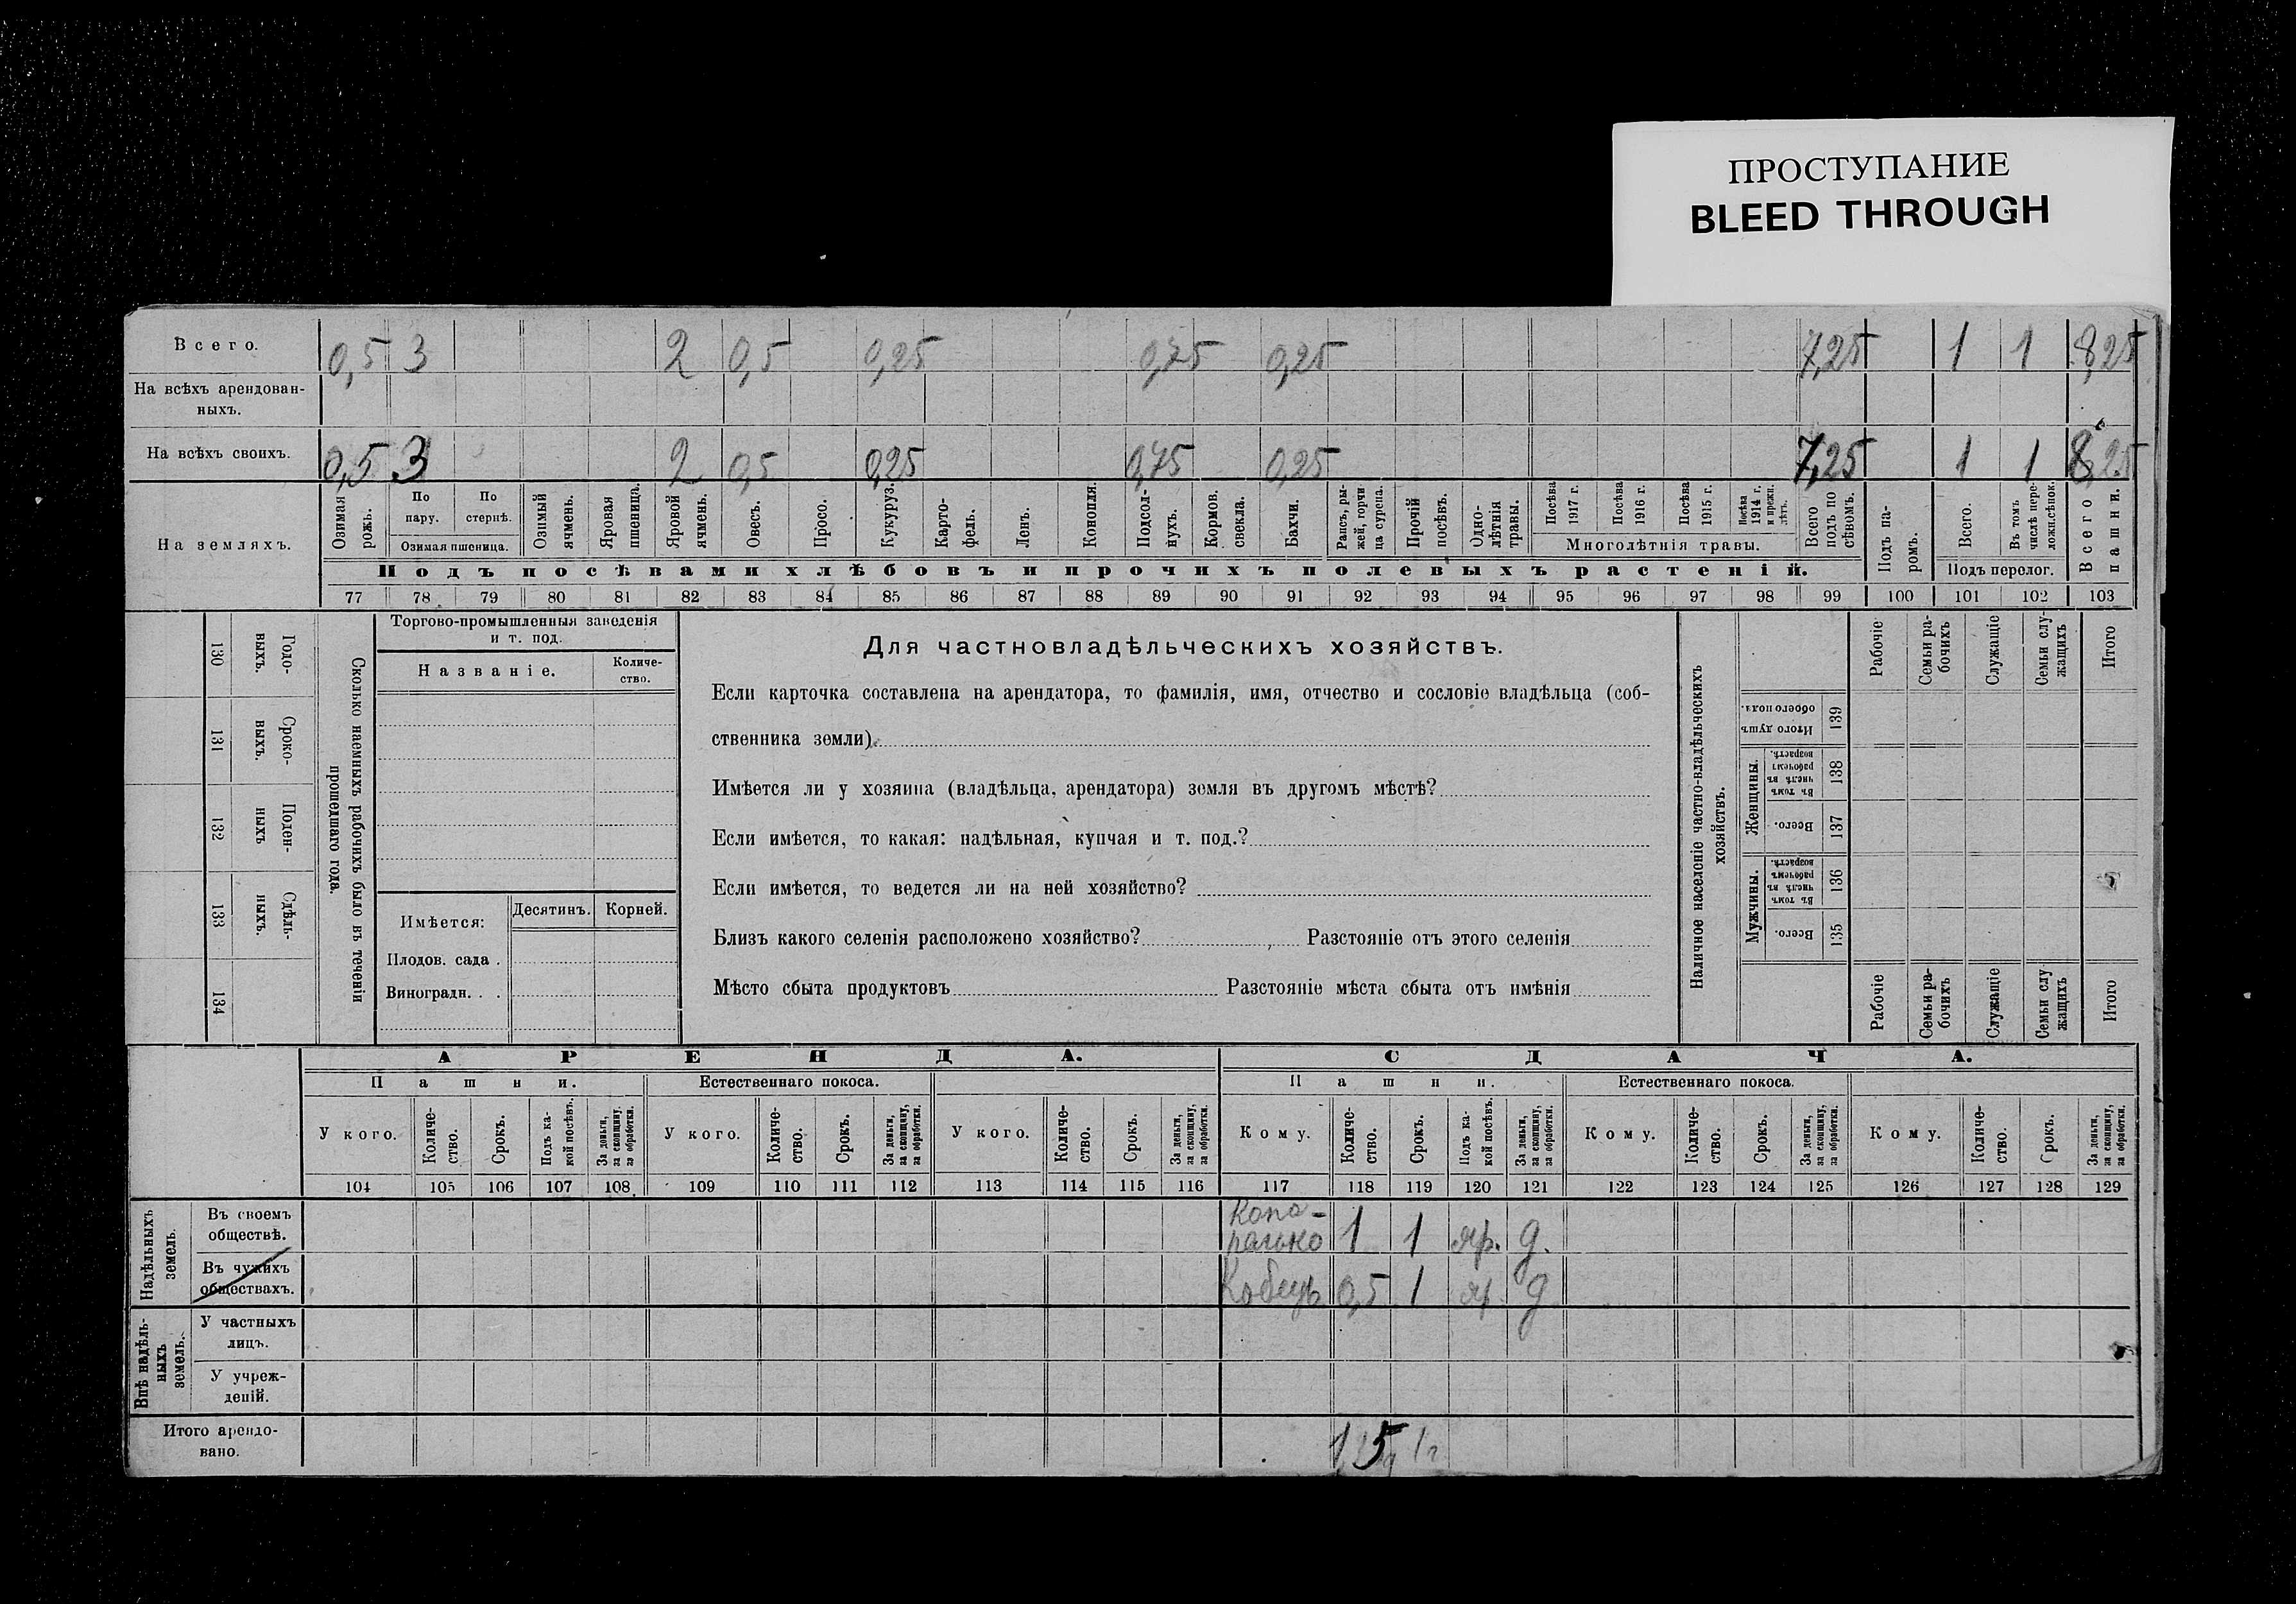 ПРОСТУПАНИЕ
BLEED THROUGH
Всего. 0,5 3 2 0,5 0,25 0,75 0,25 7,25 1 1 8,25
На всѣхъ арендован-
ныхъ.
На всѣхъ своихъ. 0,5 3 2 0,5 0,25 0,75 0,25 7,25 1 1 8,25
На земляхъ.
Озимая рожь.
По пару.
По стернѣ.
Озимая пшеница.
Озимый ячмень.
Яровая пшеница.
Яровой ячмень.
Овесъ.
Просо.
Кукуруз.
Карто-
фель.
Ленъ.
Конопля.
Подсол-
нухъ.
Кормов. свекла.
Бахчи.
Рапсъ, ры-
жей, горчи
ца сурепа.
Прочій посѣвъ.
Одно-
лѣтнія травы.
Посѣва 1917 г.
Посѣва 1916 г.
Посѣва 1915 г.
Посѣва 1914 г. и прежн. лѣтъ.
Многолѣтнія травы.
Всего подъ по
сѣвомъ.
Подъ па-
ромъ.
Всего.
Въ томъ числѣ пере-
ложн.сѣнок.
Подъ перелог.
Всего пашни.
Подъ посѣвами хлѣбовъ и прочихъ полевыхъ растеній.
77 78 79 80 81 82 83 84 85 86 87 88 89 90 91 92 93 94 95 96 97 98 99 100 101 102 103
130 Годо-
выхъ.
131 Сроко-
выхъ.
132 Поден-
ныхъ
133 Сдѣль-
ныхъ.
134
Сколько наемныхъ рабочихъ было въ теченіи
прошедшаго года.
Торгово-промышленныя заведенія
и т. под.
Названіе.
Количе-
ство.
Имѣется:
Десятинъ.
Корней.
Плодов. сада .
Виноградн. . .
Для частновладѣльческихъ хозяйствъ.
Если карточка составлена на арендатора, то фамилія, имя, отчество и сословіе владѣльца (соб-
ственника земли)
Имѣется ли у хозяина (владѣльца, арендатора) земля въ другомъ мѣстѣ?
Если имѣется, то какая: надѣльная, купчая и т. под.?
Если имѣется, то ведется ли на ней хозяйство?
Близъ какого селенія расположено хозяйство? Разстояніе отъ этого селенія
Мѣсто сбыта продуктовъ Разстояніе мѣста сбыта отъ имѣнія
Наличное населеніе частно-владѣльческихъ
хозяйствъ.
Рабочіе
Семьи ра-
бочихъ
Служащіе
Семьи слу-
жащихъ
Итого
Итого душъ обоего пола. 139
Женщины.
Въ томъ числѣ въ рабочемъ возрастѣ. 138
Всего. 137
Мужчины.
Въ томъ числѣ въ рабочемъ возрастѣ. 136
Всего. 135
Рабочіе
Семьи ра-
бочихъ
Служащіе
Семьи слу
жащихъ
Итого
АРЕНДА. СДАЧА.
Пашни. Естественнаго покоса. Пашни. Естественнаго покоса.
У кого.
Количе-
ство.
Срокъ.
Подъ ка-
кой посѣвъ.
За деньги, за скопщину, за обработки.
У кого.
Количе-
ство.
Срокъ.
За деньги, за скопщину, за обработки.
У кого.
Количе-
ство.
Срокъ.
За деньги, за скопщину, за обработки.
Кому.
Количе-
ство.
Срокъ.
Подъ ка-
кой посѣвъ.
За деньги, за скопщину, за обработки.
Кому.
Количе-
ство.
Срокъ.
За деньги, за скопщину, за обработки.
Кому.
Количе-
ство.
Срокъ.
За деньги, за скопщину, за обработки.
104 105 106 107 108 109 110 111 112 113 114 115 116 117 118 119 120 121 122 123 124 125 126 127 128 129
Надѣльныхъ
земель.
Въ своемъ
обществѣ. 1 1 яр. д.
Въ чужихъ
обществахъ. Кобецъ 0,5 1 яр д
Внѣ надѣль-
ныхъ
земель.
У частныхъ
лицъ.
У учреж-
деній.
Итого арендо-
вано.